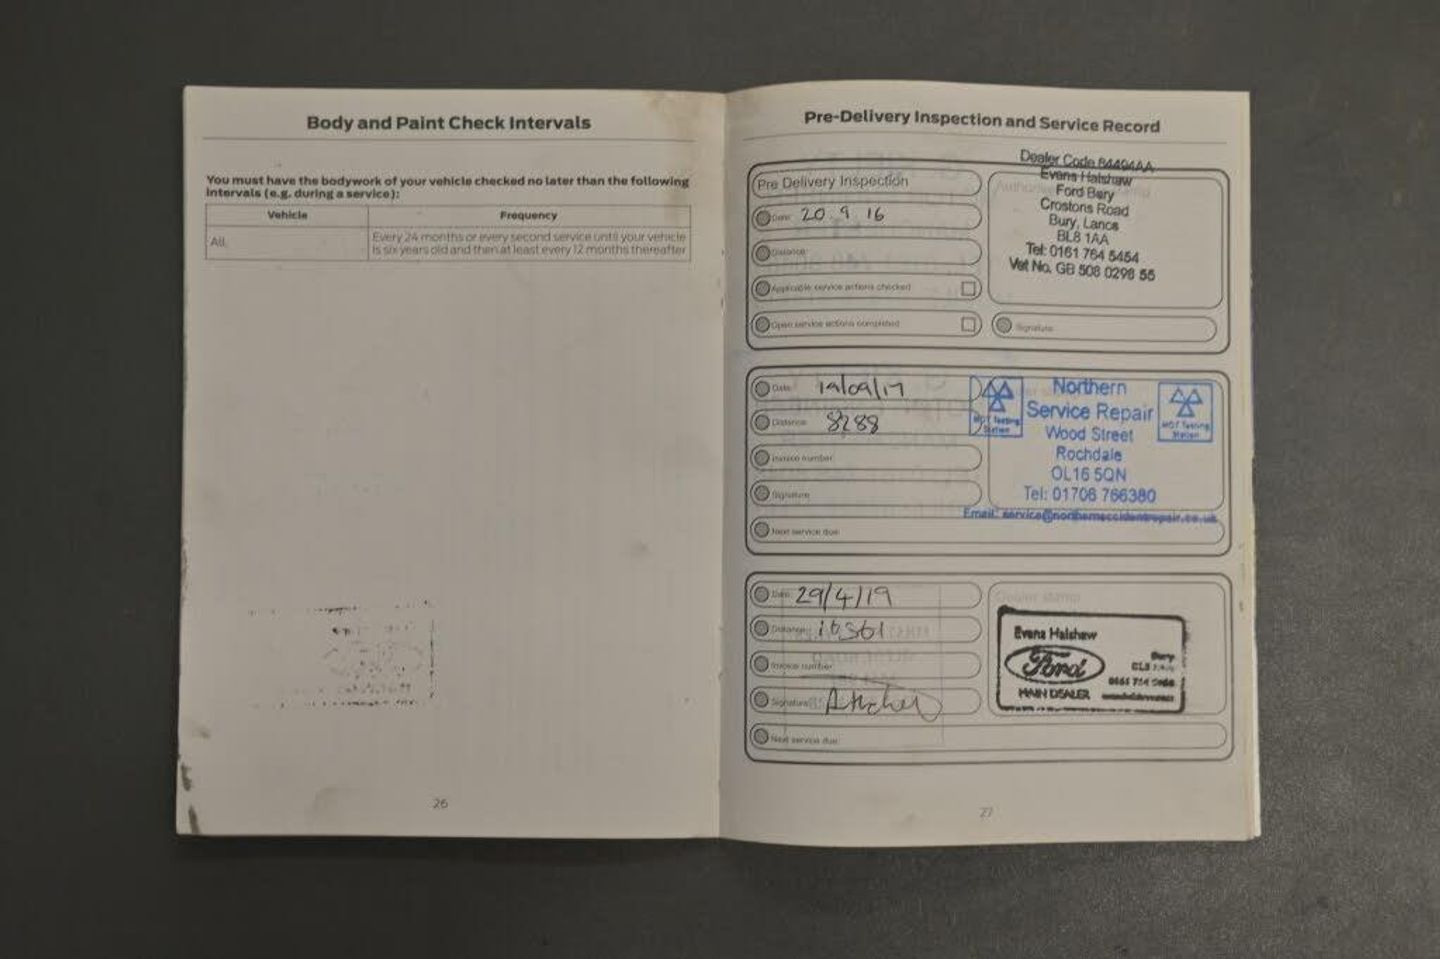 Body and Paint Check Intervals
You must have the bodywork of your vehicle checked no later than the following
intervals (e.g. during a service):
Vehicle
Frequency
All
Every 24 months or every second service until your vehicle
is six years old and then at least every 12 months thereafter
26
Pre-Delivery Inspection and Service Record
Pre Delivery Inspection
Date: 20.9 16
Distance:
Applicable service actions checked
Open service actions completed
Dealer Code 84494AA
Evans Halshaw
Ford Bery
Crostons Road
Bury, Lancs
BL8 1AA
Tel: 0161 764 5454
Vat No. GB 508 0298 55
Signature:
Date: 19/09/17
Distance: 8288
Invoice number:
Signature:
Next service due:
MOT Testing
Station
Northern
Service Repair
Wood Street
Rochdale
OL16 5QN
Tel: 01706 766380
Email: service@northernaccidentrepair.co.uk
MOT Testing
Station
Date: 29/4/19
Distance: 16361
Invoice number:
Signature:
Next service due:
Dealer stamp
Evans Halshaw
Ford
MAIN DEALER
Bury
27